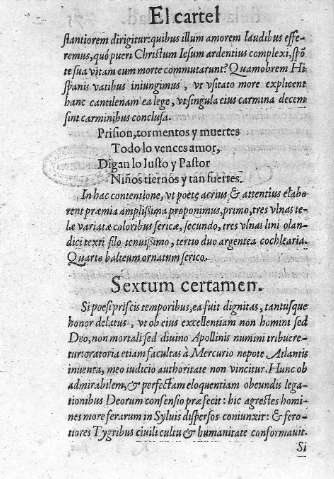 El cartel
stantiorem dirigitur: quibus illum amorem laudibus effe-
remus, quo pueri Christum Iesum ardentius complexi, spõ
te sua vitam cum morte commutarunt? Quamobrem Hi-
spanis vatibus iniungimus, vt vsitato more explicent
hanc cantilenam ea lege, vt singula eius carmina decem
sint carminibus conclusa.
Prision, tormentos y muertes
Todo lo vences amor,
Digan lo Iusto y Pastor
Niños tiernos y tan fuertes.
In hac contentione, vt poetę acrius & attentius elabo
rent præmia amplissima proponimus, primo, tres vlnas te
læ variatæ coloribus sericæ, secundo, tres vlnas lini olan
dici texti filo tenuissimo, tertio duo argentea cochlearia.
Quarto balteum ornatum serico.
Sextum certamen.
Si poesi priscis temporibus, ea fuit dignitas, tantusque
honor delatus, vt ob eius excellentiam non homini sed
Deo, non mortali sed divino Apollinis numini tribuere-
tur: oratoria etiam facultas à Mercurio nepote Atlantis
inuenta, meo iudicio authoritate non vincitur. Hunc ob
admirabilem, & perfectam eloquentiam obeundis lega-
tionibus Deorum consensio præfecit: hic agrestes homi-
nes more ferarum in Syluis dispersos coniunxit: & fero-
tiores Tygribus ciuili cultu & humanitate conformauit.
Si